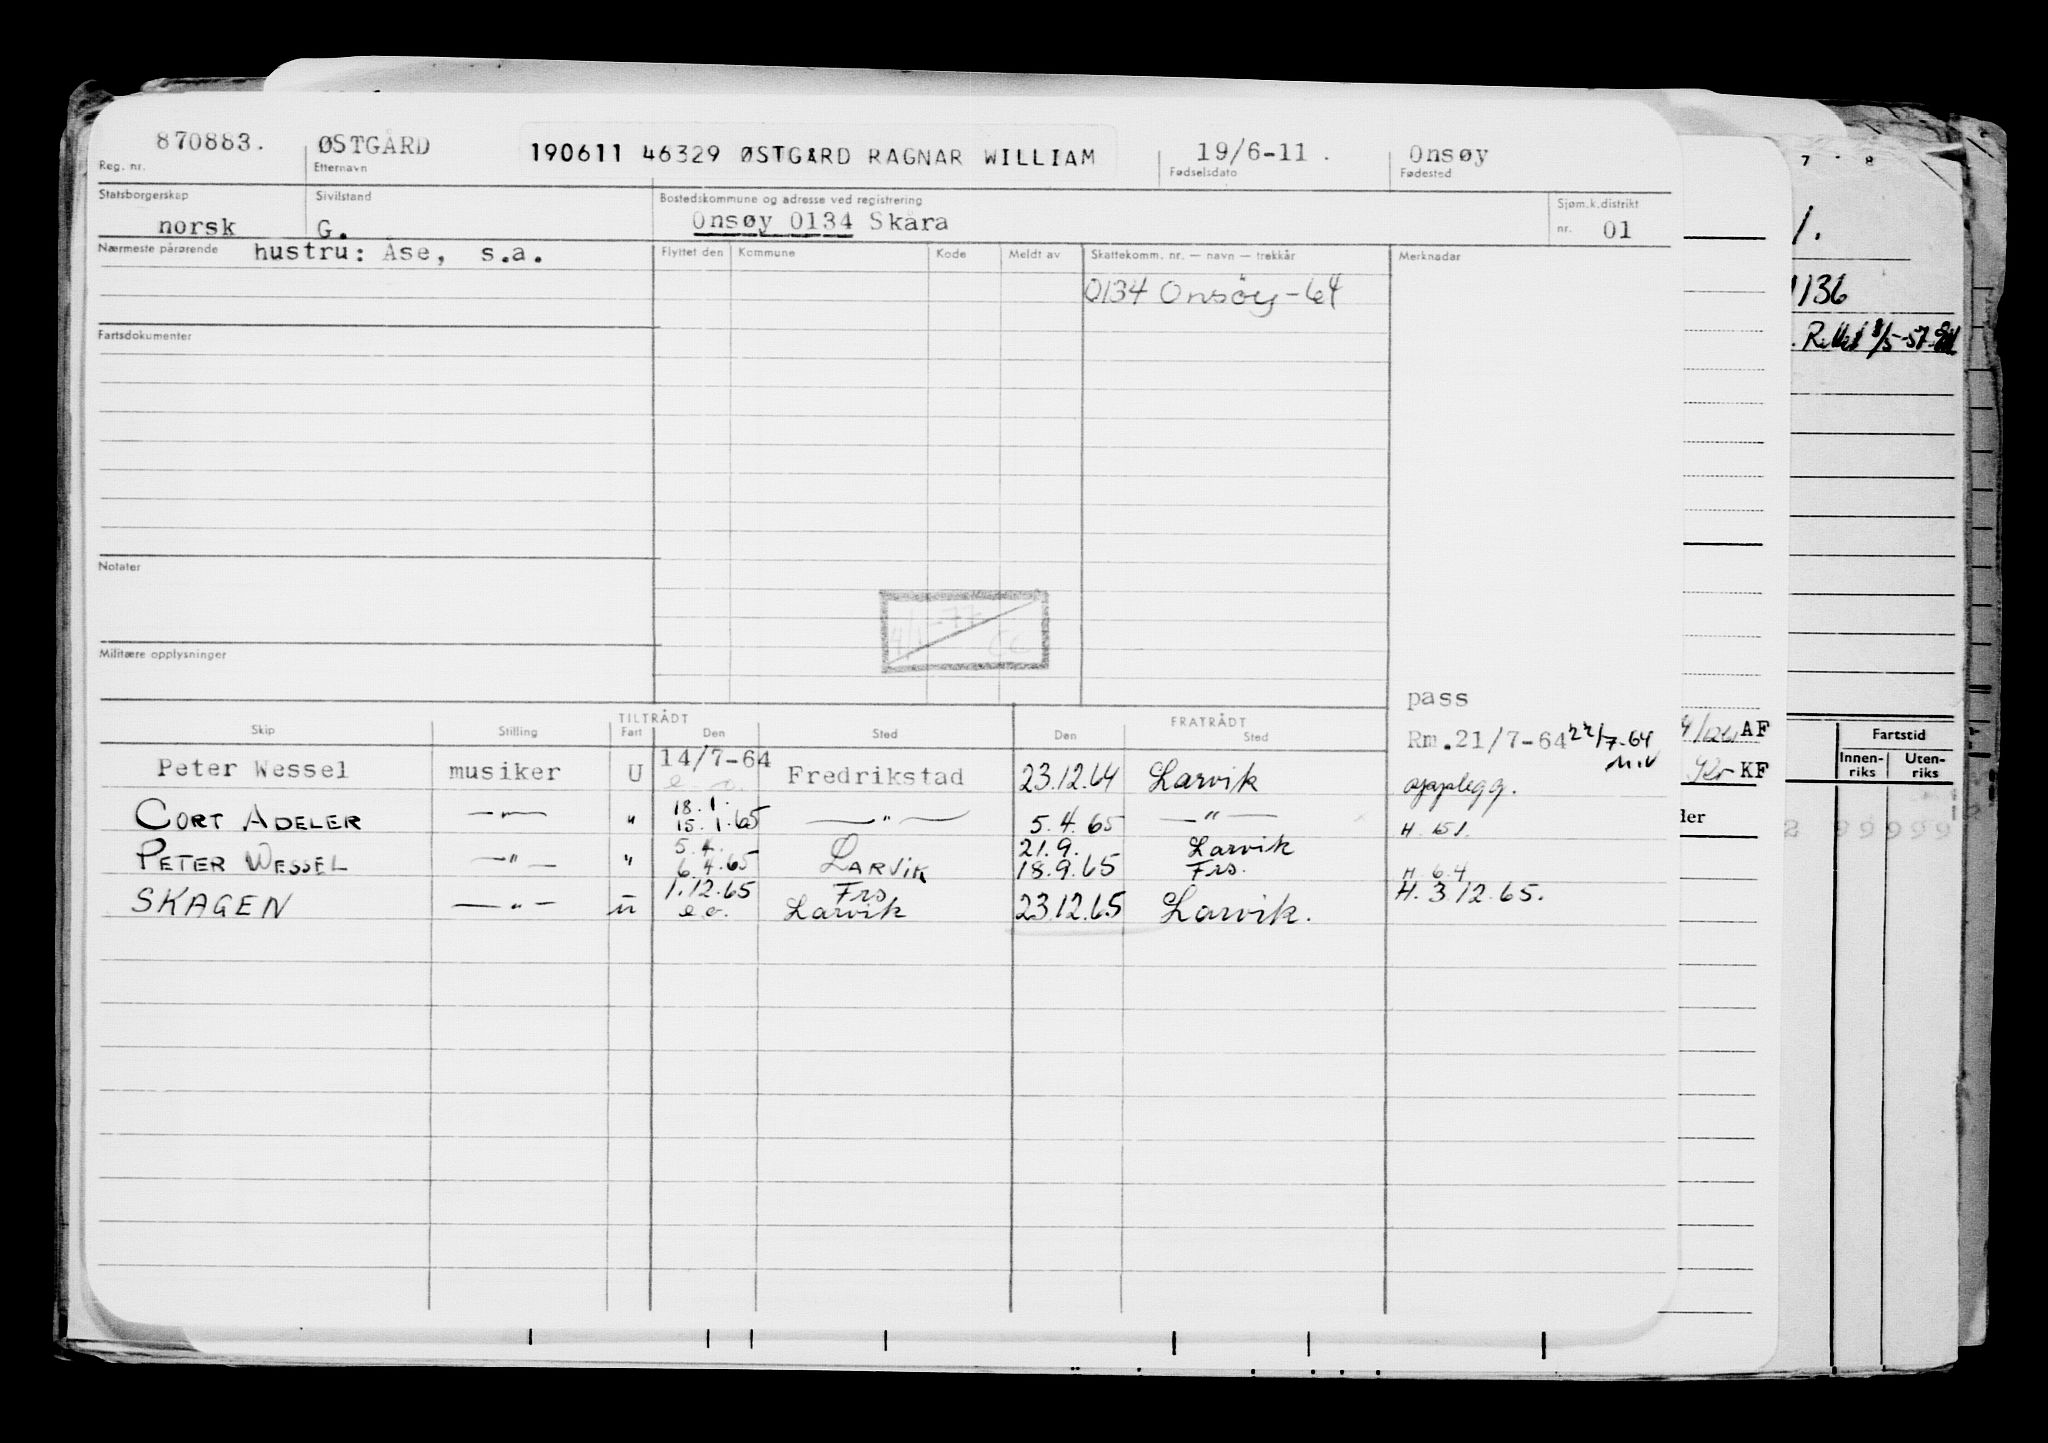 870883. ØSTGÅRD 190611 46329 ØSTGÅRD RAGNAR WILLIAM 19/6-11. Onsøy
Reg. nr. Etternavn Fødselsdato Fødested
Statsborgerskap Sivilstand Bostedskommune og adresse ved registrering Sjøm.k.distrikt
norsk G. Onsøy 0134 Skåra nr. 01
Nærmeste pårørende hustru: Åse, s.a. Flyttet den Kommune Kode Meldt av Skattekomm. nr. — navn — trekkår Merknader
0134 Onsøy-64
Fartsdokumenter
Notater
Militære opplysninger
pass
TILTRÅDT FRATRÅDT
Skip Stilling Fart Den Sted Den Sted
Rm.21/7-64 22/7-64
Peter Wessel musiker U 14/7-64 e.o. Fredrikstad 23.12.64 Larvik opplegg.
18.1.
CORT ADELER —"— " 15.1.65 —"— 5.4.65 —"— H. 15/1.
5.4. 21.9. Larvik
PETER WESSEL —"— " 6.4.65 LARVIK 18.9.65 Frs. H 6.4
1.12.65 Frs H. 3.12.65.
SKAGEN —"— u e.o. Larvik 23.12.65 Larvik.
7 8
1.
136
AF
KF
der
Fartstid
Innen-riks Uten-riks